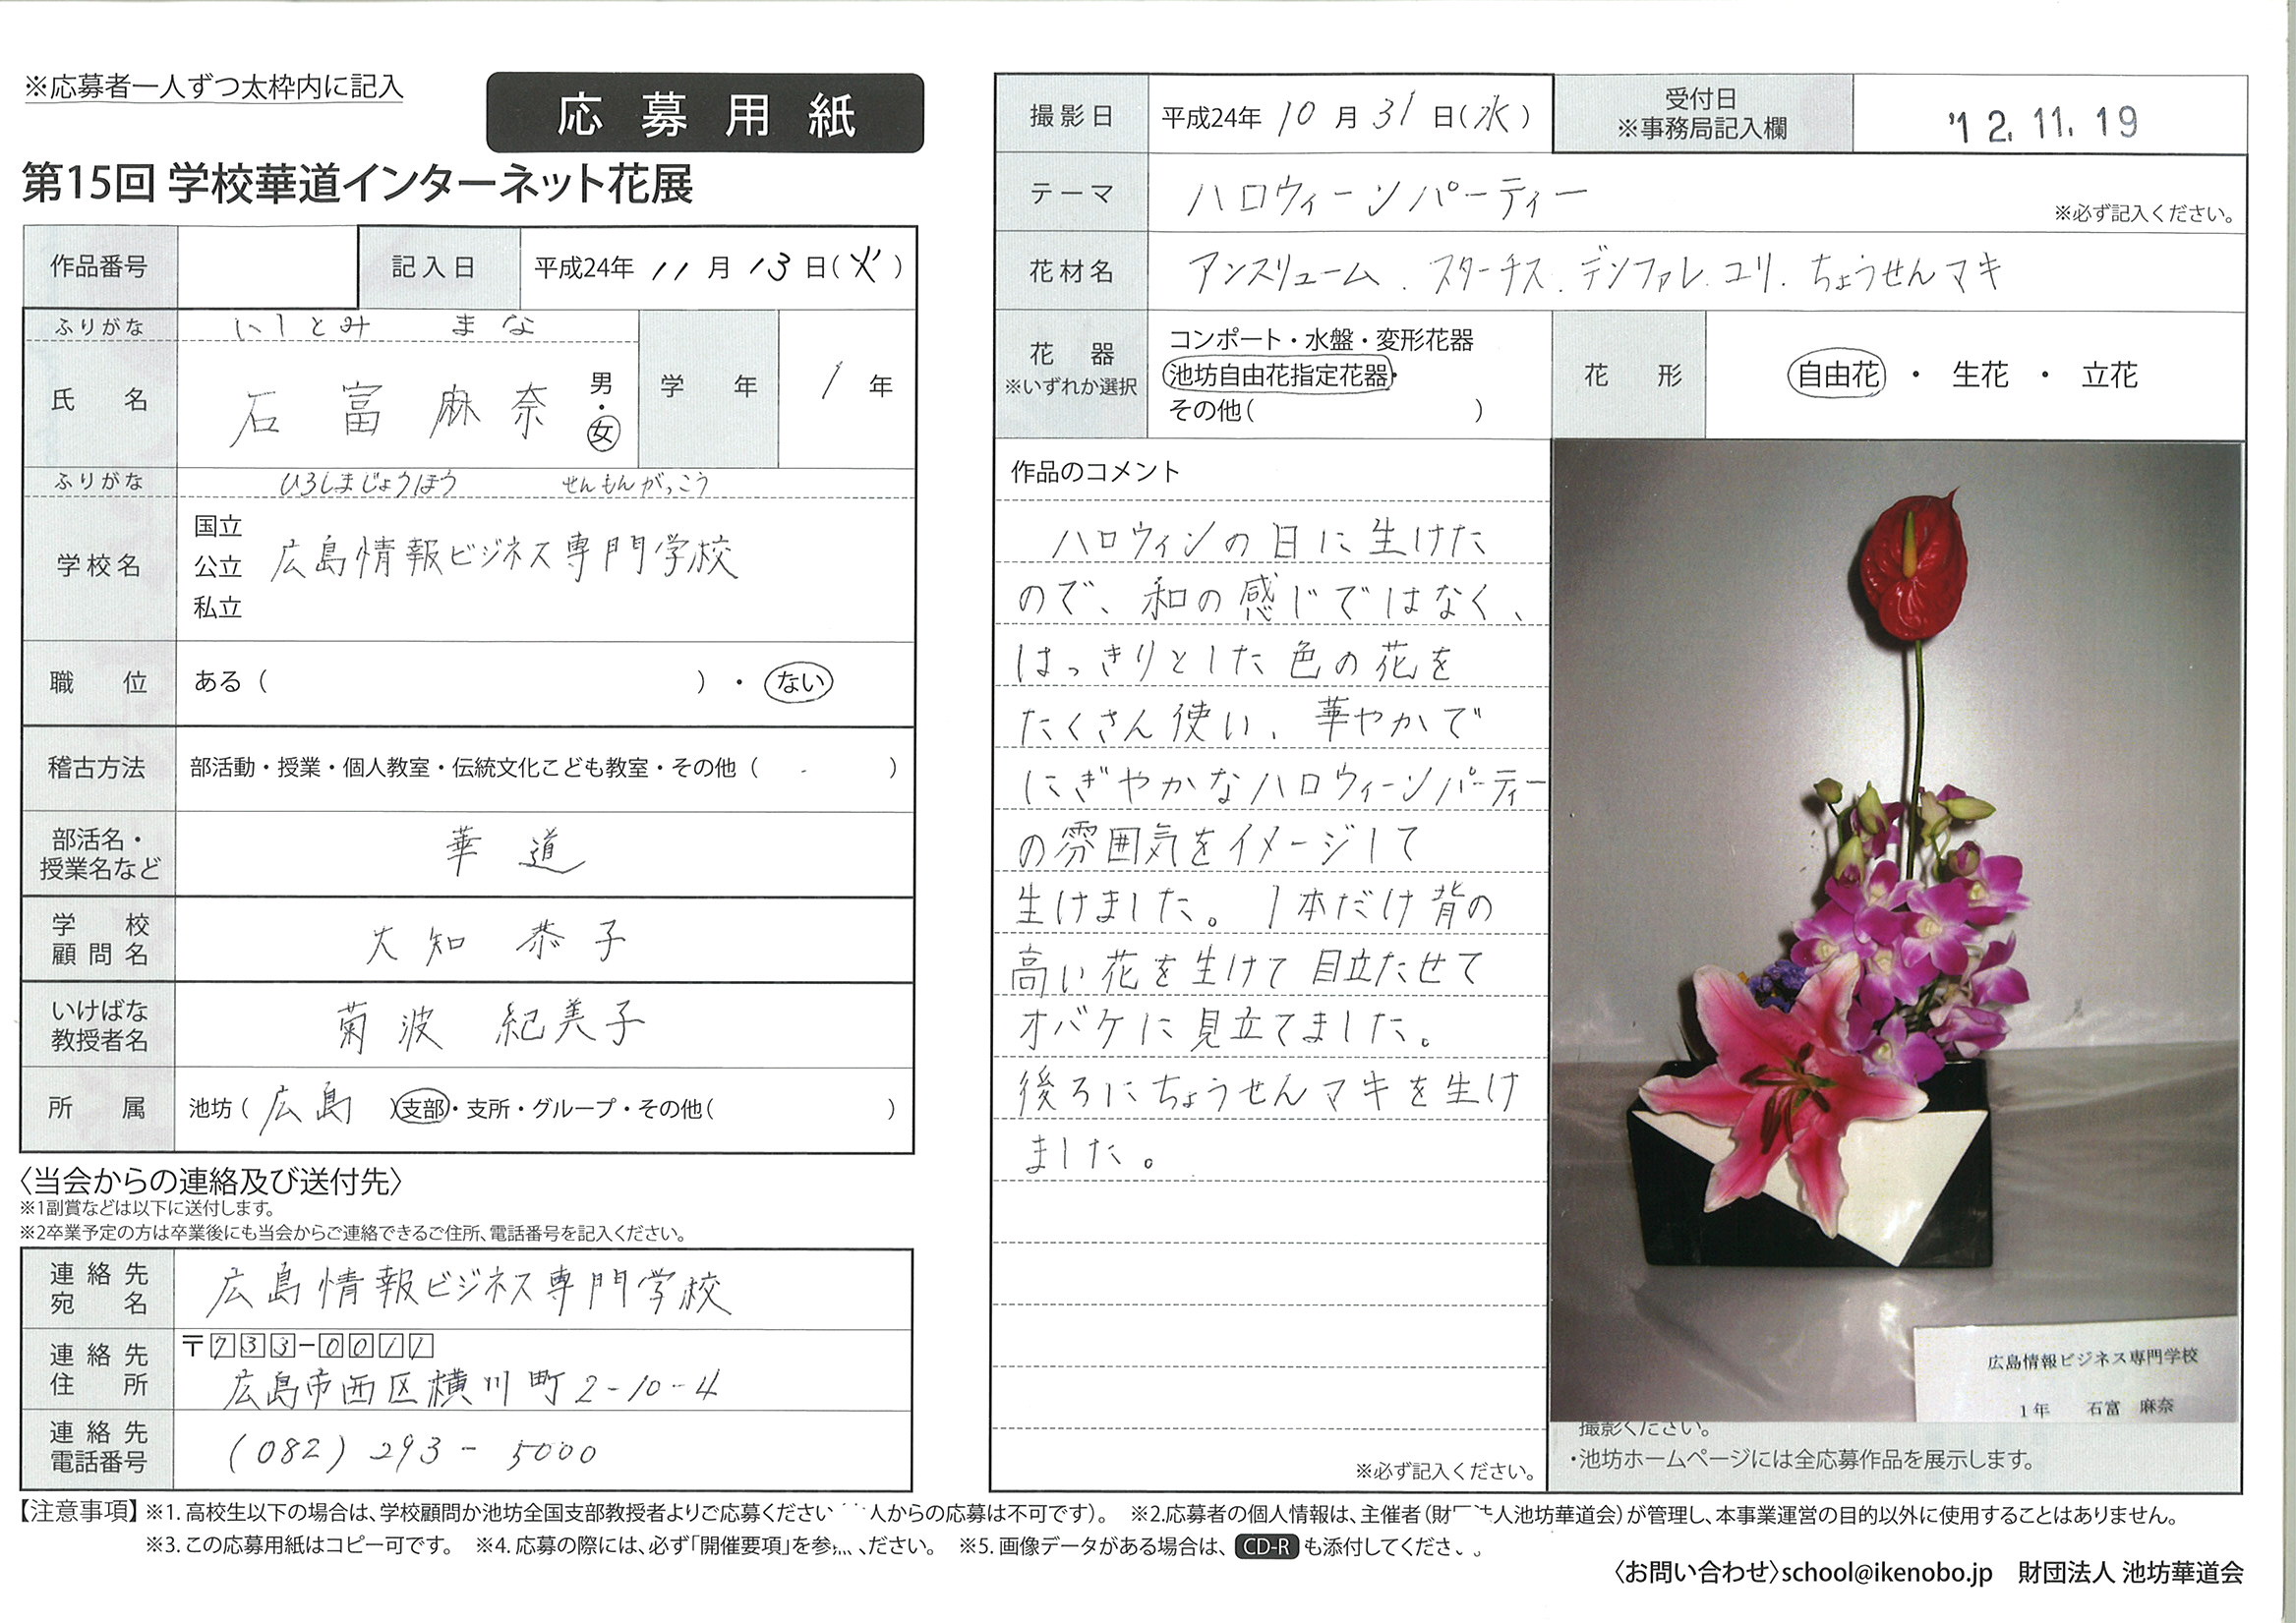 ※応募者一人ずつ太枠内に記入
応募用紙
第15回 学校華道インターネット花展
作品番号
記入日 平成24年 11月 13日(火)
ふりがな いしとみ まな
氏名 石富 麻奈 男・女
学年 1年
ふりがな ひろしまじょうほう せんもんがっこう
学校名 国立 公立 私立 広島情報ビジネス専門学校
職位 ある( )・ない
稽古方法 部活動・授業・個人教室・伝統文化こども教室・その他( )
部活名・授業名など 華道
学校顧問名 大知 恭子
いけばな教授者名 菊波 紀美子
所属 池坊(広島)支部・支所・グループ・その他( )
〈当会からの連絡及び送付先〉
※1副賞などは以下に送付します。
※2卒業予定の方は卒業後にも当会からご連絡できるご住所、電話番号を記入ください。
連絡先宛名 広島情報ビジネス専門学校
連絡先住所 〒733-0011
広島市西区横川町2-10-4
連絡先電話番号 (082)293-5000
撮影日 平成24年 10月 31日(水)
受付日 ※事務局記入欄 '12.11.19
テーマ ハロウィーンパーティー ※必ず記入ください。
花材名 アンスリューム.スターチス.デンファレ.ユリ.ちょうせんマキ
花器 ※いずれか選択 コンポート・水盤・変形花器
池坊自由花指定花器・
その他( )
花形 自由花・生花・立花
作品のコメント
ハロウィンの日に生けた
ので、和の感じではなく、
はっきりとした色の花を
たくさん使い、華やかで
にぎやかなハロウィーンパーティー
の雰囲気をイメージして
生けました。1本だけ背の
高い花を生けて目立たせて
オバケに見立てました。
後ろにちょうせんマキを生け
ました。
※必ず記入ください。
広島情報ビジネス専門学校
1年 石富 麻奈
撮影ください。
・池坊ホームページには全応募作品を展示します。
【注意事項】※1.高校生以下の場合は、学校顧問か池坊全国支部教授者よりご応募ください 人からの応募は不可です)。 ※2.応募者の個人情報は、主催者(財 人池坊華道会)が管理し、本事業運営の目的以外に使用することはありません。
※3.この応募用紙はコピー可です。 ※4.応募の際には、必ず「開催要項」を参 ださい。 ※5.画像データがある場合は、CD-Rも添付してくださ
〈お問い合わせ〉school@ikenobo.jp 財団法人 池坊華道会